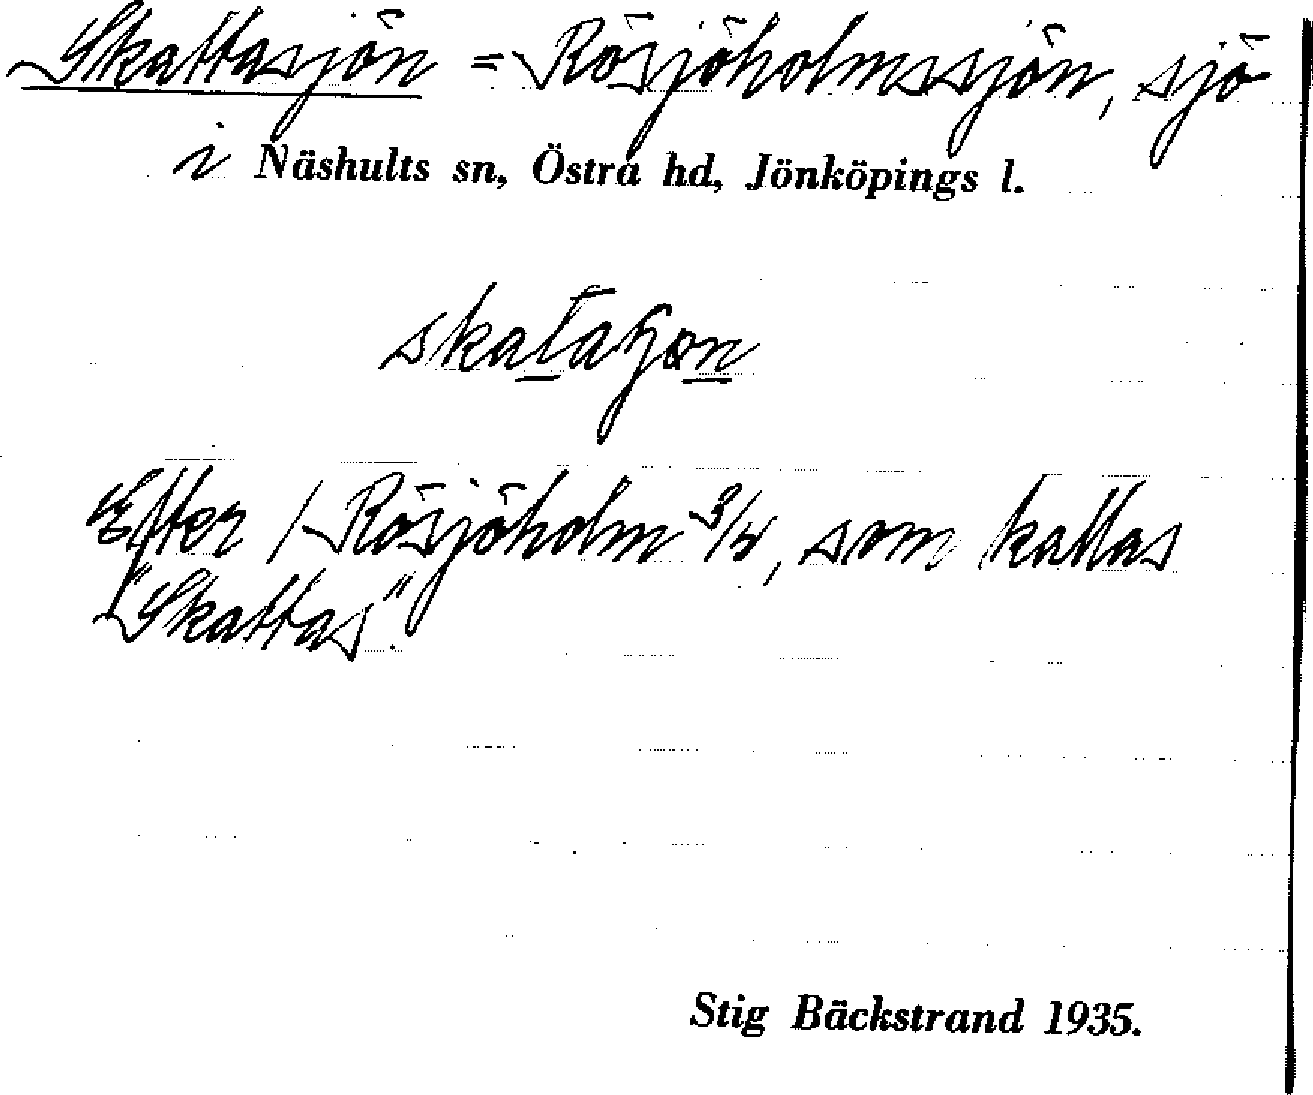 Skattasjön = Rösjöholmssjön, sjö
i Näshults sn, Östra hd, Jönköpings l.
Efter /Rösjöholm 3/4, som kallas
"Skattas".
Stig Bäckstrand 1935.